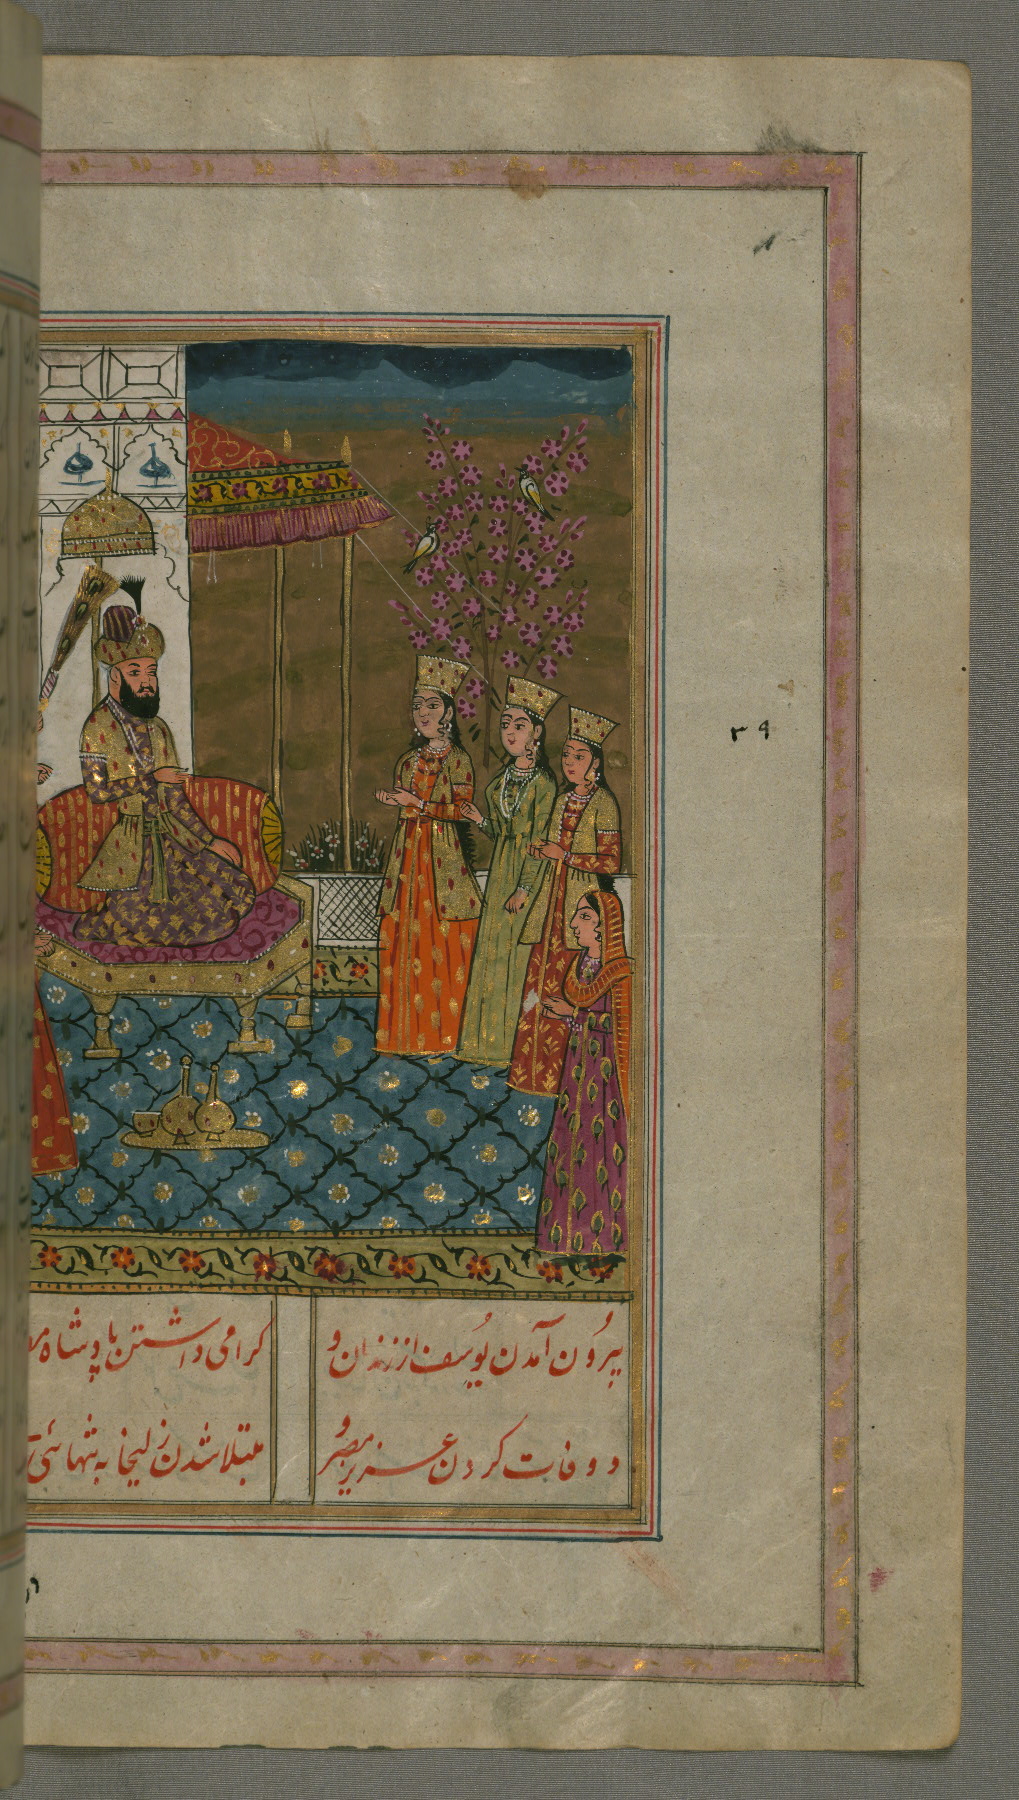 بیرون آمدن یوسف از زندان و گرامی داشتن پادشاه
و وفات کردن عزیز مصر و مبتلا شدن زلیخا به تنهائی